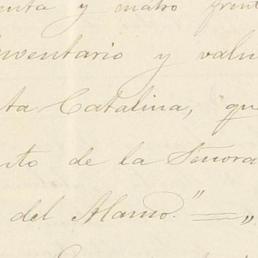 enta y cuatro frent
Inventario y valu
ta Catalina, qu
nto de la Señora
del Alamo." = "